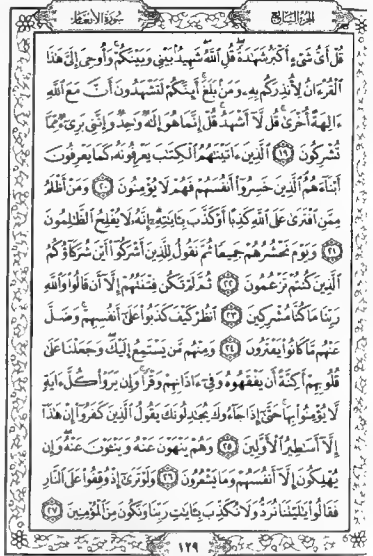 سورة الأنعام
الجزء السابع
قُلْ أَىُّ شَىْءٍ أَكْبَرُ شَهَٰدَةً قُلِ ٱللَّهُ شَهِيدٌۢ بَيْنِى وَبَيْنَكُمْ وَأُوحِىَ إِلَىَّ هَٰذَا
ٱلْقُرْءَانُ لِأُنذِرَكُم بِهِۦ وَمَنۢ بَلَغَ أَئِنَّكُمْ لَتَشْهَدُونَ أَنَّ مَعَ ٱللَّهِ
ءَالِهَةً أُخْرَىٰ قُل لَّآ أَشْهَدُ قُلْ إِنَّمَا هُوَ إِلَٰهٌ وَٰحِدٌ وَإِنَّنِى بَرِىٓءٌ مِّمَّا
تُشْرِكُونَ ١٩ ٱلَّذِينَ ءَاتَيْنَٰهُمُ ٱلْكِتَٰبَ يَعْرِفُونَهُۥ كَمَا يَعْرِفُونَ
أَبْنَآءَهُمُ ٱلَّذِينَ خَسِرُوٓا۟ أَنفُسَهُمْ فَهُمْ لَا يُؤْمِنُونَ ٢٠ وَمَنْ أَظْلَمُ
مِمَّنِ ٱفْتَرَىٰ عَلَى ٱللَّهِ كَذِبًا أَوْ كَذَّبَ بِـَٔايَٰتِهِۦٓ إِنَّهُۥ لَا يُفْلِحُ ٱلظَّٰلِمُونَ
٢١ وَيَوْمَ نَحْشُرُهُمْ جَمِيعًا ثُمَّ نَقُولُ لِلَّذِينَ أَشْرَكُوٓا۟ أَيْنَ شُرَكَآؤُكُمُ
ٱلَّذِينَ كُنتُمْ تَزْعُمُونَ ٢٢ ثُمَّ لَمْ تَكُن فِتْنَتُهُمْ إِلَّآ أَن قَالُوا۟ وَٱللَّهِ
رَبِّنَا مَا كُنَّا مُشْرِكِينَ ٢٣ ٱنظُرْ كَيْفَ كَذَبُوا۟ عَلَىٰٓ أَنفُسِهِمْ وَضَلَّ
عَنْهُم مَّا كَانُوا۟ يَفْتَرُونَ ٢٤ وَمِنْهُم مَّن يَسْتَمِعُ إِلَيْكَ وَجَعَلْنَا عَلَىٰ
قُلُوبِهِمْ أَكِنَّةً أَن يَفْقَهُوهُ وَفِىٓ ءَاذَانِهِمْ وَقْرًا وَإِن يَرَوْا۟ كُلَّ ءَايَةٍ
لَّا يُؤْمِنُوا۟ بِهَا حَتَّىٰٓ إِذَا جَآءُوكَ يُجَٰدِلُونَكَ يَقُولُ ٱلَّذِينَ كَفَرُوٓا۟ إِنْ هَٰذَآ
إِلَّآ أَسَٰطِيرُ ٱلْأَوَّلِينَ ٢٥ وَهُمْ يَنْهَوْنَ عَنْهُ وَيَنْـَٔوْنَ عَنْهُ وَإِن
يُهْلِكُونَ إِلَّآ أَنفُسَهُمْ وَمَا يَشْعُرُونَ ٢٦ وَلَوْ تَرَىٰٓ إِذْ وُقِفُوا۟ عَلَى ٱلنَّارِ
فَقَالُوا۟ يَٰلَيْتَنَا نُرَدُّ وَلَا نُكَذِّبَ بِـَٔايَٰتِ رَبِّنَا وَنَكُونَ مِنَ ٱلْمُؤْمِنِينَ ٢٧
١٢٩